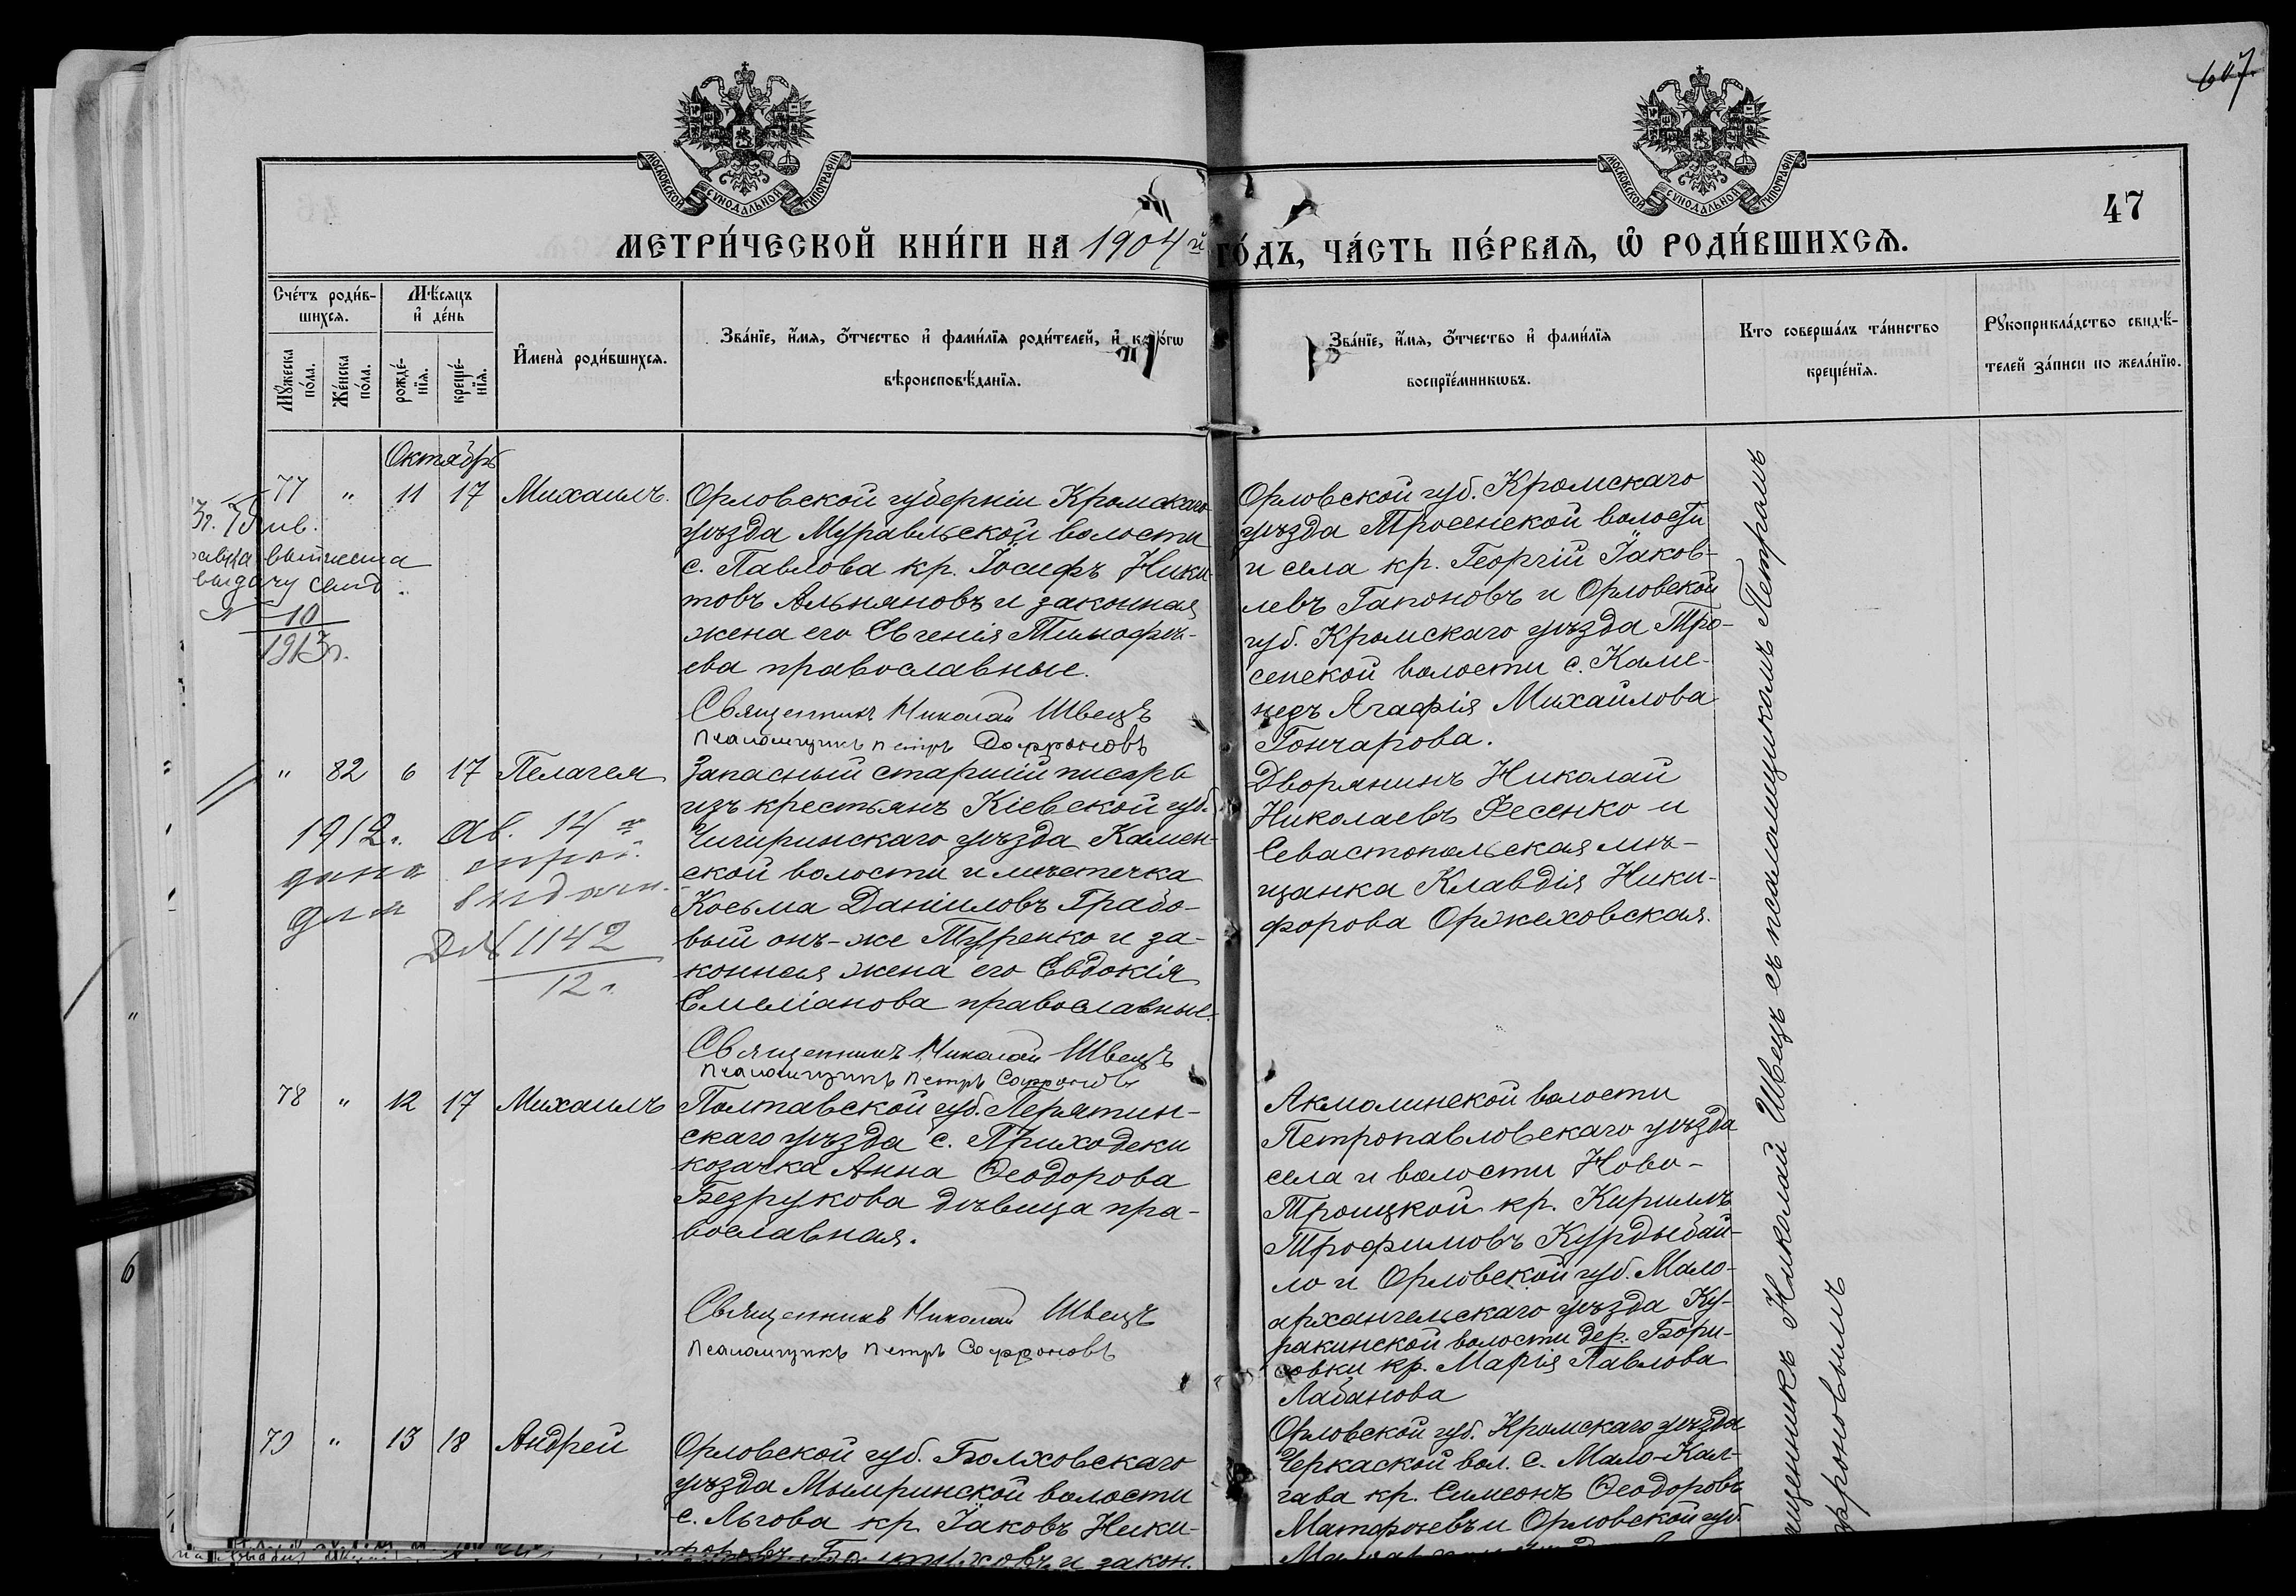 607
МОСКОВСКОЙ СУНОДАЛЬНОЙ ТИПОГРАФІИ
МОСКОВСКОЙ СУНОДАЛЬНОЙ ТИПОГРАФІИ.
47
МЕТРИ́ЧЕСКОЙ КНИ́ГИ НА 1904 й ГО́ДЪ, ЧА́СТЬ ПЕ́РВАЯ, Ѡ РОДИ́ВШИХСЯ.
Сче́тъ роди́в-
шихся.
Мꙋ́жеска по́ла.
Же́нска по́ла.
Мѣ́сяцъ
и҆ де́нь
рожде́-
нїя.
креще́-
нїя.
И҆мена̀ роди́вшихся.
Зва́нїе, и҆́мя, ѻ҆́тчество и҆ фами́лїя роди́телей, и҆ како́гѡ
вѣроисповѣ́данїя.
Зва́нїе, и҆́мя, ѻ҆́тчество и҆ фами́лїя
воспрїе́мникѡвъ.
Кто̀ соверша́лъ та́инство
креще́нїя.
Рꙋкоприкла́дство свидѣ́-
телей за́писи по жела́нїю.
Октябрь
77 " 11 17 Михаилъ.
Орловской губерніи Кромскаго
уѣзда Муравльской волости
с. Павлова кр. Іосифъ Ники-
товъ Альняновъ и законная
жена его Евгенія Тимофѣ-
ева православные.
Священникъ Николай Швецъ
Псаломщикъ Петръ Софроновъ
Орловской губ. Кромскаго
уѣзда Тросенской волости
и села кр. Георгій Іаков-
левъ Гапоновъ и Орловской
губ. Кромскаго уѣзда Тро-
сенской волости с. Каме-
нецъ Агафія Михайлова
Гончарова.
Янв.
выдачу свид.
№ 10
1913 г.
" 82 6 17 Пелагея
Запасный старшій писарь
изъ крестьянъ Кіевской губ.
Чигиринскаго уѣзда Камен-
ской волости и мѣстечка
Косьма Даніиловъ Грабо-
вый онъ-же Туренко и за-
конная жена его Евдокія
Емеліанова православные.
Священникъ Николай Швецъ
Псаломщикъ Петръ Софроновъ
Дворянинъ Николай
Николаевъ Фесенко и
Севастопольская мѣ-
щанка Клавдія Ники-
форова Оржеховская.
1912 г. Ав. 14
дана
для
Д № 1142
12 г.
78 " 12 17 Михаилъ
Полтавской губ. Пирятин-
скаго уѣзда с. Приходьки
козачка Анна Ѳеодорова
Безрукова дѣвица пра-
вославная.
Священникъ Николай Швецъ
Псаломщикъ Петръ Софроновъ
Акмолинской волости
Петропавловскаго уѣзда
села и волости Ново-
Троицкой кр. Кириллъ
Трофимовъ Курдыбай-
ло и Орловской губ. Мало-
архангельскаго уѣзда Ку-
ракинской волости дер. Бори-
совки кр. Марія Павлова
Лабанова
79 " 13 18 Андрей
Орловской губ. Болховскаго
уѣзда Мымринской волости
с. Льгова кр. Іаковъ Ники-
форовъ и закон.
Орловской губ. Кромскаго уѣзда
Черкаской вол. с. Мало-Кал-
гава кр. Симеонъ Ѳеодоровъ
Матфѣевъ и Орловской губ.
щенникъ Николай Швецъ съ псаломщикомъ Петромъ
фроновымъ
6